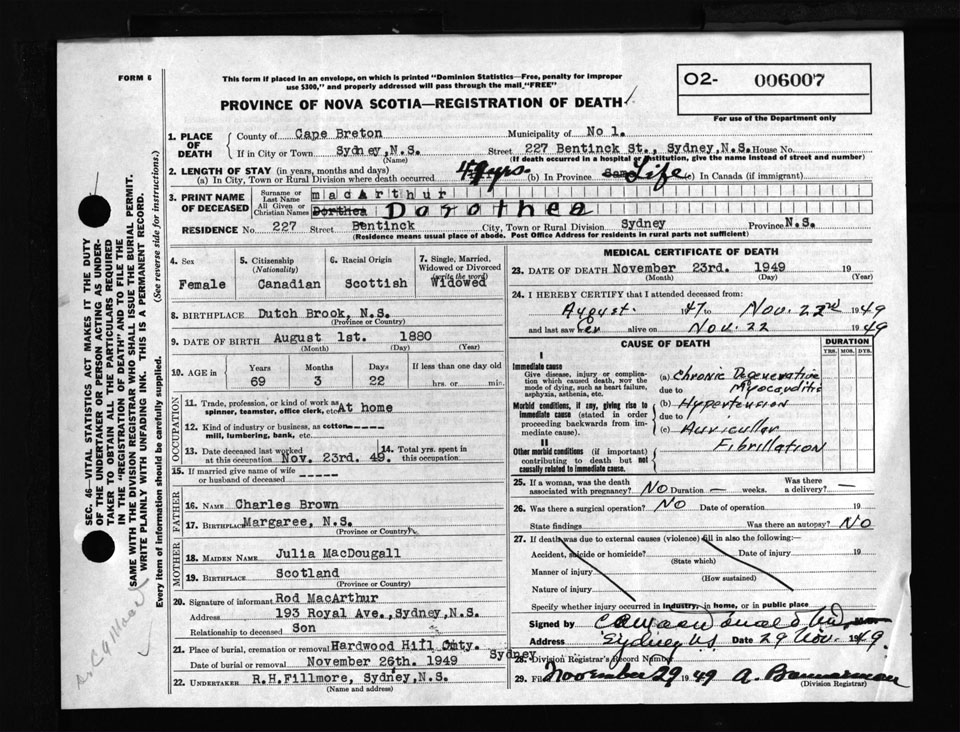 FORM 6
This form if placed in an envelope, on which is printed "Dominion Statistics—Free, penalty for improper
use $300," and properly addressed will pass through the mail "FREE"
O2- 006007
For use of the Department only
PROVINCE OF NOVA SCOTIA—REGISTRATION OF DEATH
1. PLACE OF DEATH
County of Cape Breton Municipality of No 1.
If in City or Town Sydney, N.S. Street 227 Bentinck St., Sydney, N.S. House No.
(Name) (If death occurred in a hospital or institution, give the name instead of street and number)
2. LENGTH OF STAY (in years, months and days)
(a) In City, Town or Rural Division where death occurred 49 yrs. (b) In Province Same Life (c) In Canada (if immigrant)
3. PRINT NAME OF DECEASED
Surname or Last Name macArthur
All Given or Christian Names Dorthea Dorothea
RESIDENCE No. 227 Street Bentinck City, Town or Rural Division Sydney Province N.S.
(Residence means usual place of abode. Post Office Address for residents in rural parts not sufficient)
4. Sex
Female
5. Citizenship
(Nationality)
Canadian
6. Racial Origin
Scottish
7. Single, Married,
Widowed or Divorced
(write the word)
Widowed
8. BIRTHPLACE Dutch Brook, N.S.
(Province or Country)
9. DATE OF BIRTH August 1st. 1880
(Month) (Day) (Year)
10. AGE in
Years Months Days If less than one day old
69 3 22 hrs. or min.
OCCUPATION
11. Trade, profession, or kind of work as
spinner, teamster, office clerk, etc. At home
12. Kind of industry or business, as cotton
mill, lumbering, bank, etc.
13. Date deceased last worked
at this occupation Nov. 23rd. 49.
14. Total yrs. spent in
this occupation
15. If married give name of wife
or husband of deceased
FATHER
16. NAME Charles Brown
17. BIRTHPLACE Margaree, N.S.
(Province or Country)
MOTHER
18. MAIDEN NAME Julia MacDougall
19. BIRTHPLACE Scotland
(Province or Country)
20. Signature of informant Rod MacArthur
Address 193 Royal Ave., Sydney, N.S.
Relationship to deceased Son
21. Place of burial, cremation or removal Hardwood Hill Cmty. Sydney
Date of burial or removal November 26th. 1949
22. UNDERTAKER R.H.Fillmore, Sydney, N.S.
(Name and address)
MEDICAL CERTIFICATE OF DEATH
23. DATE OF DEATH November 23rd. 1949 19
(Month) (Day) (Year)
24. I HEREBY CERTIFY that I attended deceased from:
August 1947 to Nov. 22nd 1949
and last saw her alive on Nov. 22 1949
CAUSE OF DEATH
DURATION
YRS. MOS. DYS.
I
Immediate cause
Give disease, injury or complication which caused death, not the mode of dying, such as heart failure, asphyxia, asthenia, etc.
(a) Chronic Degenerative
due to Myocarditis
Morbid conditions, if any, giving rise to immediate cause (stated in order proceeding backwards from immediate cause).
(b) Hypertension
due to
(c) Auricular
Fibrillation
II
Other morbid conditions (if important) contributing to death but not causally related to immediate cause.
25. If a woman, was the death
associated with pregnancy? NO Duration — weeks. Was there a delivery? —
26. Was there a surgical operation? NO Date of operation 19
State findings Was there an autopsy? NO
27. If death was due to external causes (violence) fill in also the following:—
Accident, suicide or homicide? Date of injury 19
(State which)
Manner of injury
(How sustained)
Nature of injury
Specify whether injury occurred in industry, in home, or in public place
Signed by
Address Sydney NS Date 29 Nov. 1949.
28. Division Registrar's Record Number
29. Filed November 29 1949 A. Bannerman
(Division Registrar)
SEC. 46—VITAL STATISTICS ACT MAKES IT THE DUTY
OF THE UNDERTAKER OR PERSON ACTING AS UNDERTAKER
TO OBTAIN ALL THE PARTICULARS REQUIRED
IN THE "REGISTRATION OF DEATH" AND TO FILE THE
SAME WITH THE DIVISION REGISTRAR WHO SHALL ISSUE THE BURIAL PERMIT.
WRITE PLAINLY WITH UNFADING INK. THIS IS A PERMANENT RECORD.
Every item of information should be carefully supplied. (See reverse side for instructions.)